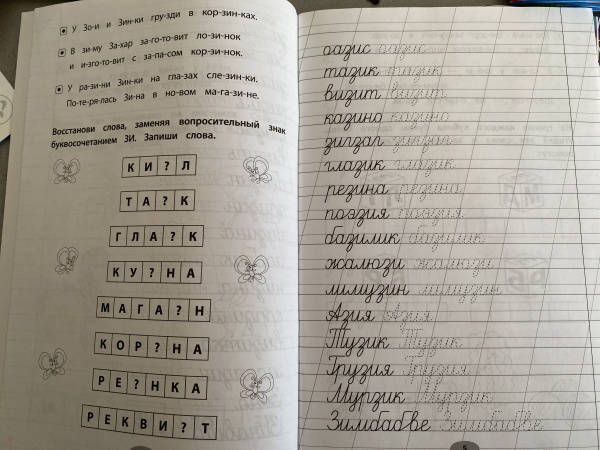 У Зо-и и Зин-ки гру-зди в кор-зин-ках.
В зи-му За-хар за-го-то-вит ло-зи-нок
и и-зго-то-вит с за-па-сом кор-зи-нок.
У ра-зи-ни Зин-ки на гла-зах сле-зин-ки.
По-те-ря-лась Зи-на в но-вом ма-га-зи-не.
Восстанови слова, заменяя вопросительный знак
буквосочетанием ЗИ. Запиши слова.
КИ?Л
ТА?К
ГЛА?К
КУ?НА
МАГА?Н
КОР?НА
РЕ?НКА
РЕКВИ?Т
оазис оазис
тазик тазик
визит визит
казино казино
зигзаг зигзаг
глазик глазик
резина резина
поэзия поэзия
базилик базилик
жалюзи жалюзи
лимузин лимузин
Азия Азия
Тузик Тузик
Грузия Грузия
Мурзик Мурзик
Зимбабве Зимбабве
5